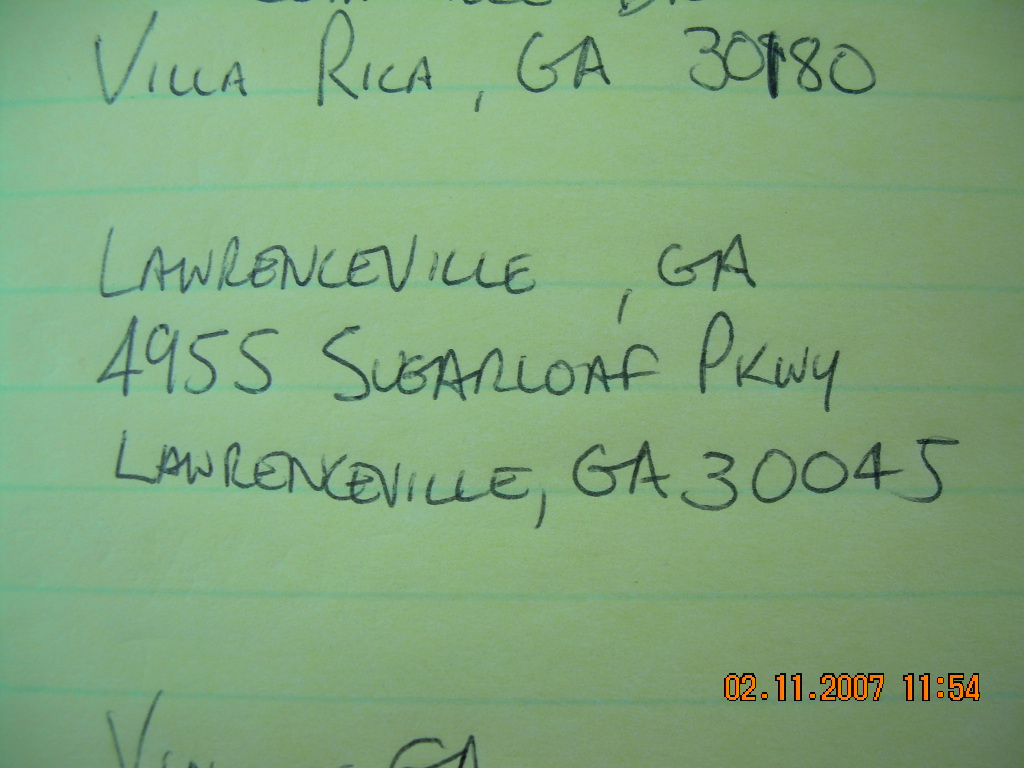 Villa Rica, GA 30180
Lawrenceville, GA
4955 Sugarloaf Pkwy
Lawrenceville, GA 30045
GA
02.11.2007 11:54